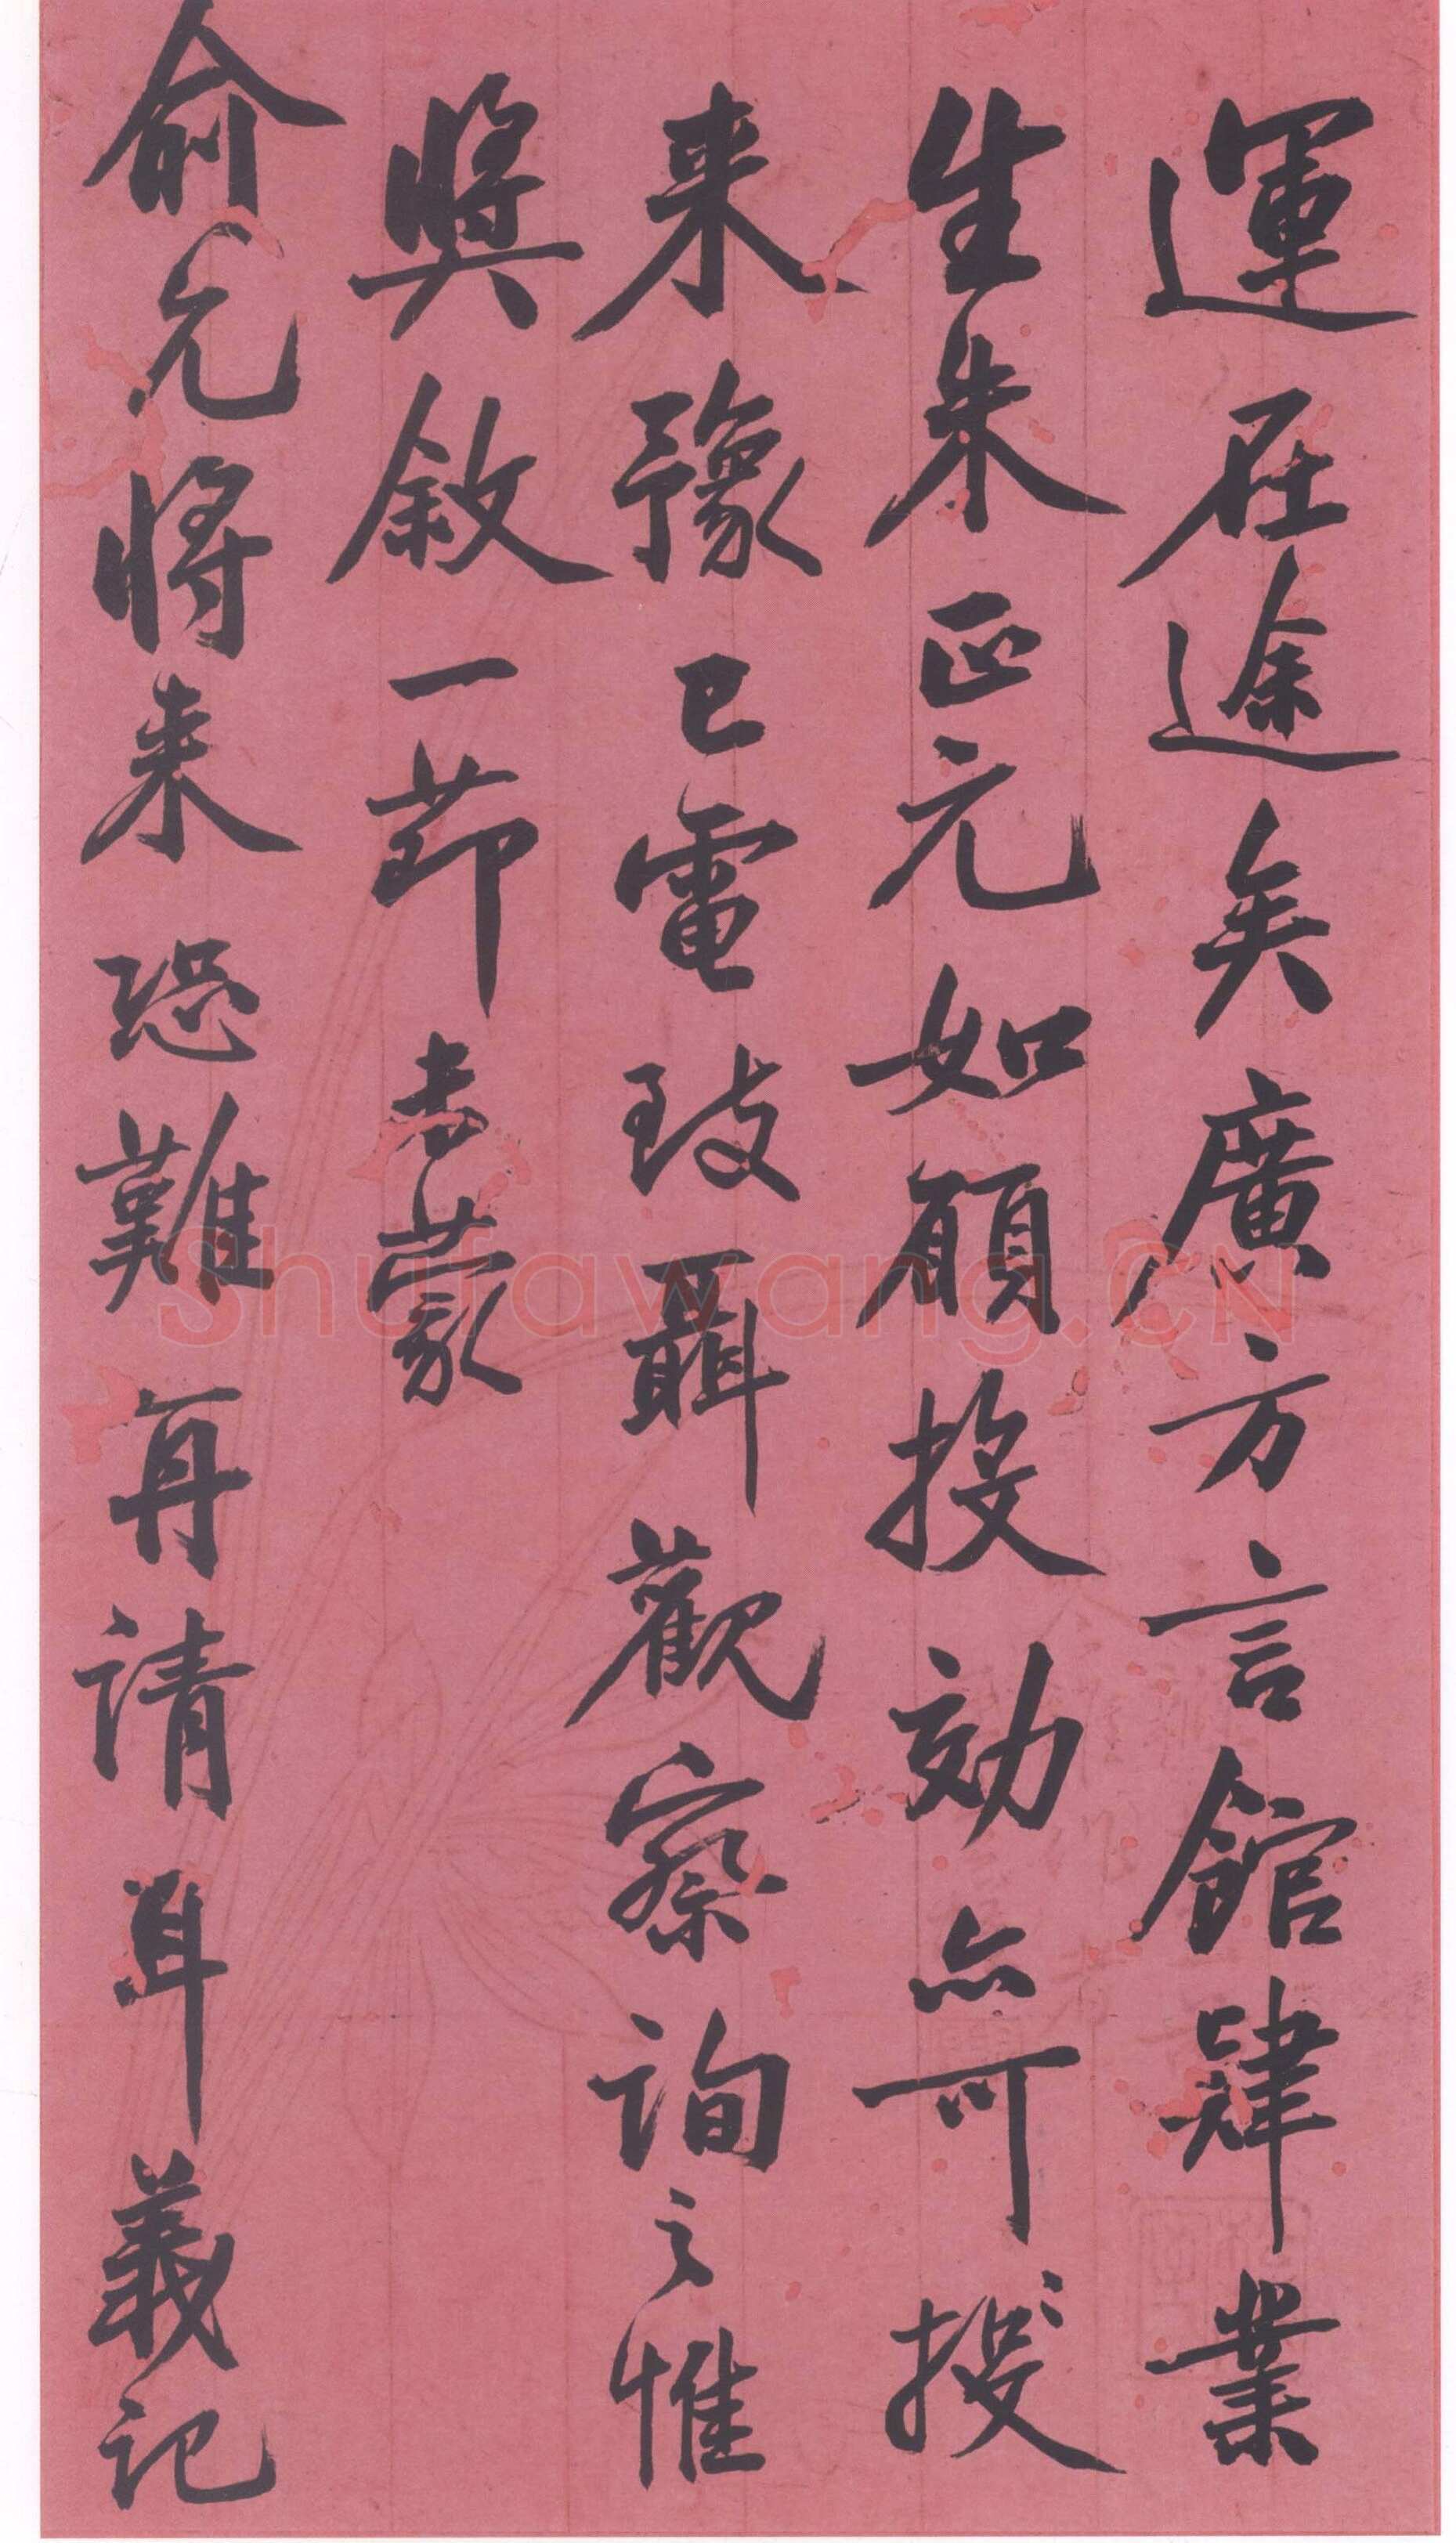 運在途矣廣方言館肄業
生朱正元如願投効亦可援
来豫已電致聶觀察詢之惟
奬敘一節未蒙
俞允將来恐難再請耳義記
shufawang.CN